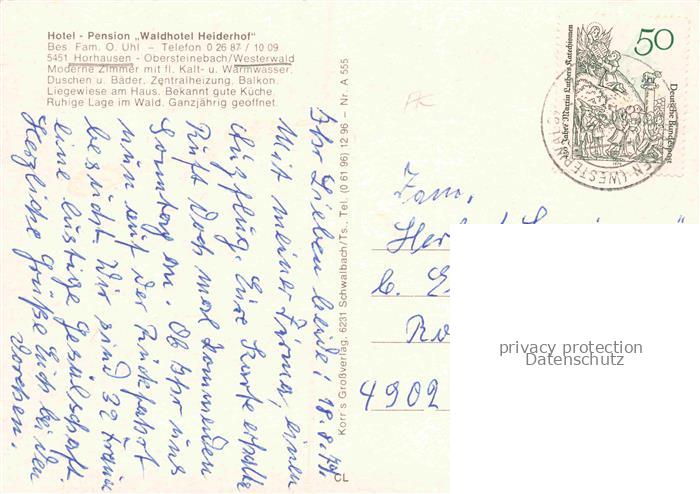 Hotel - Pension „Waldhotel Heiderhof"
Bes. Fam. O. Uhl – Telefon 0 26 87 / 10 09
5451 Horhausen - Obersteinebach/Westerwald
Moderne Zimmer mit fl. Kalt- u. Warmwasser.
Duschen u. Bäder. Zentralheizung. Balkon.
Liegewiese am Haus. Bekannt gute Küche.
Ruhige Lage im Wald. Ganzjährig geöffnet.
Ihr Lieben beide! 18.8.79
Mit meiner Firma, einen
Ausflug. Eure Karte erhalten
Ruft doch mal kommenden
Sonntag an. Ob Ihr uns
nun auf der Rückfahrt
besucht. Wir sind 32 Frauen
eine lustige Gesellschaft.
Herzliche Grüße Euch beiden
Korr's Großverlag, 6231 Schwalbach/Ts., Tel. (0 61 96) 12 96 – Nr. A 555
CL
50
Deutsche Bundespost
450 Jahre Martin Luthers Katechismen
EN (WESTERWALD)
Fam.
4902
privacy protection
Datenschutz